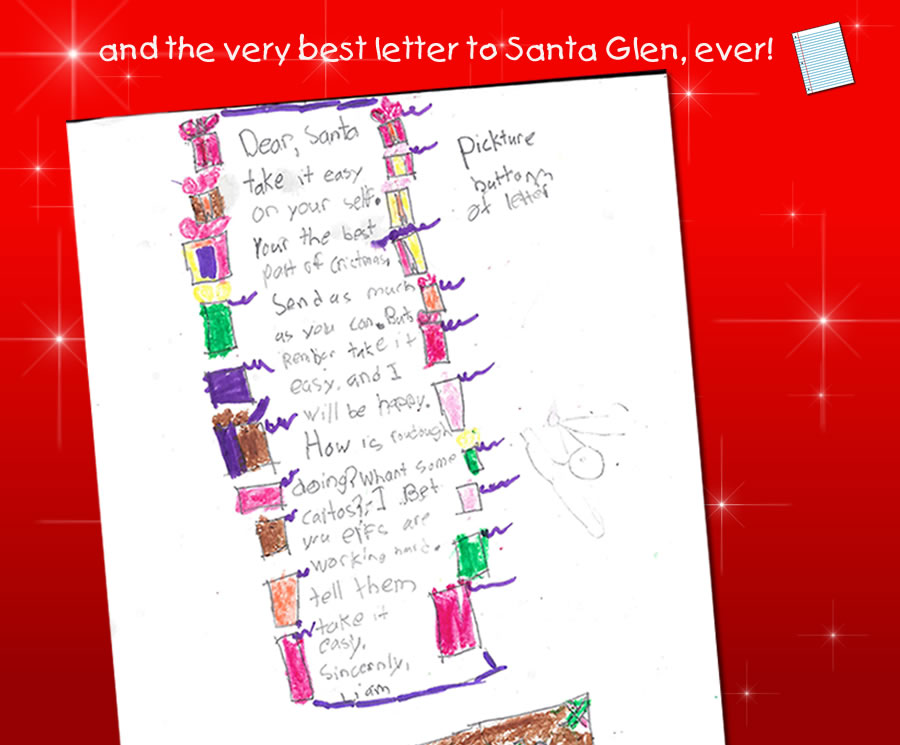 and the very best letter to Santa Glen, ever!
Dear, Santa
take it easy
on your self.
Your the best
part of Crictmas,
Send as much
as you can. But
Rember take it
easy, and I
will be happy.
How is roudough
doing? Whant some
cartos?, I Bet
you elfs are
working hard.
tell them
take it
easy.
Sincernly,
Liam
Pickture
buttom
of letter